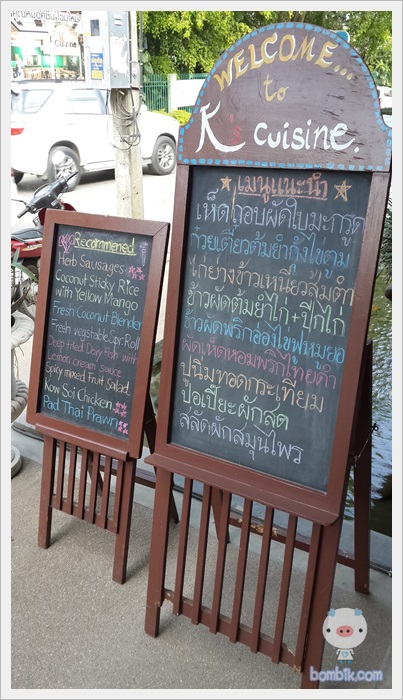 WELCOME...
to
K's cuisine.
เมนูแนะนำ
เห็ดทอบผัดใบมะกรูด
ก๋วยเตี๋ยวต้มยำกุ้งไข่ตูม
ไก่ย่างข้าวเหนียวส้มตำ
ข้าวผัดต้มยำไก่+ปีกไก่
ข้าวผัดพริกฮ่องไข่ฟูหมูยอ
ผัดเห็ดหอมพริกไทยดำ
ปูนิ่มทอดกระเทียม
ปอเปี๊ยะผักสด
สลัดผักสมุนไพร
Recommened
Herb Sausages
Coconut Sticky Rice
with Yellow Mango
Fresh Coconut Blender
Fresh vegetable Spr.Roll
Deep Fried Dory Fish with
Lemon cream sauce
Spicy mixed Fruit Salad
Kow Soi Chicken
Pad Thai Prawn
bombik.com